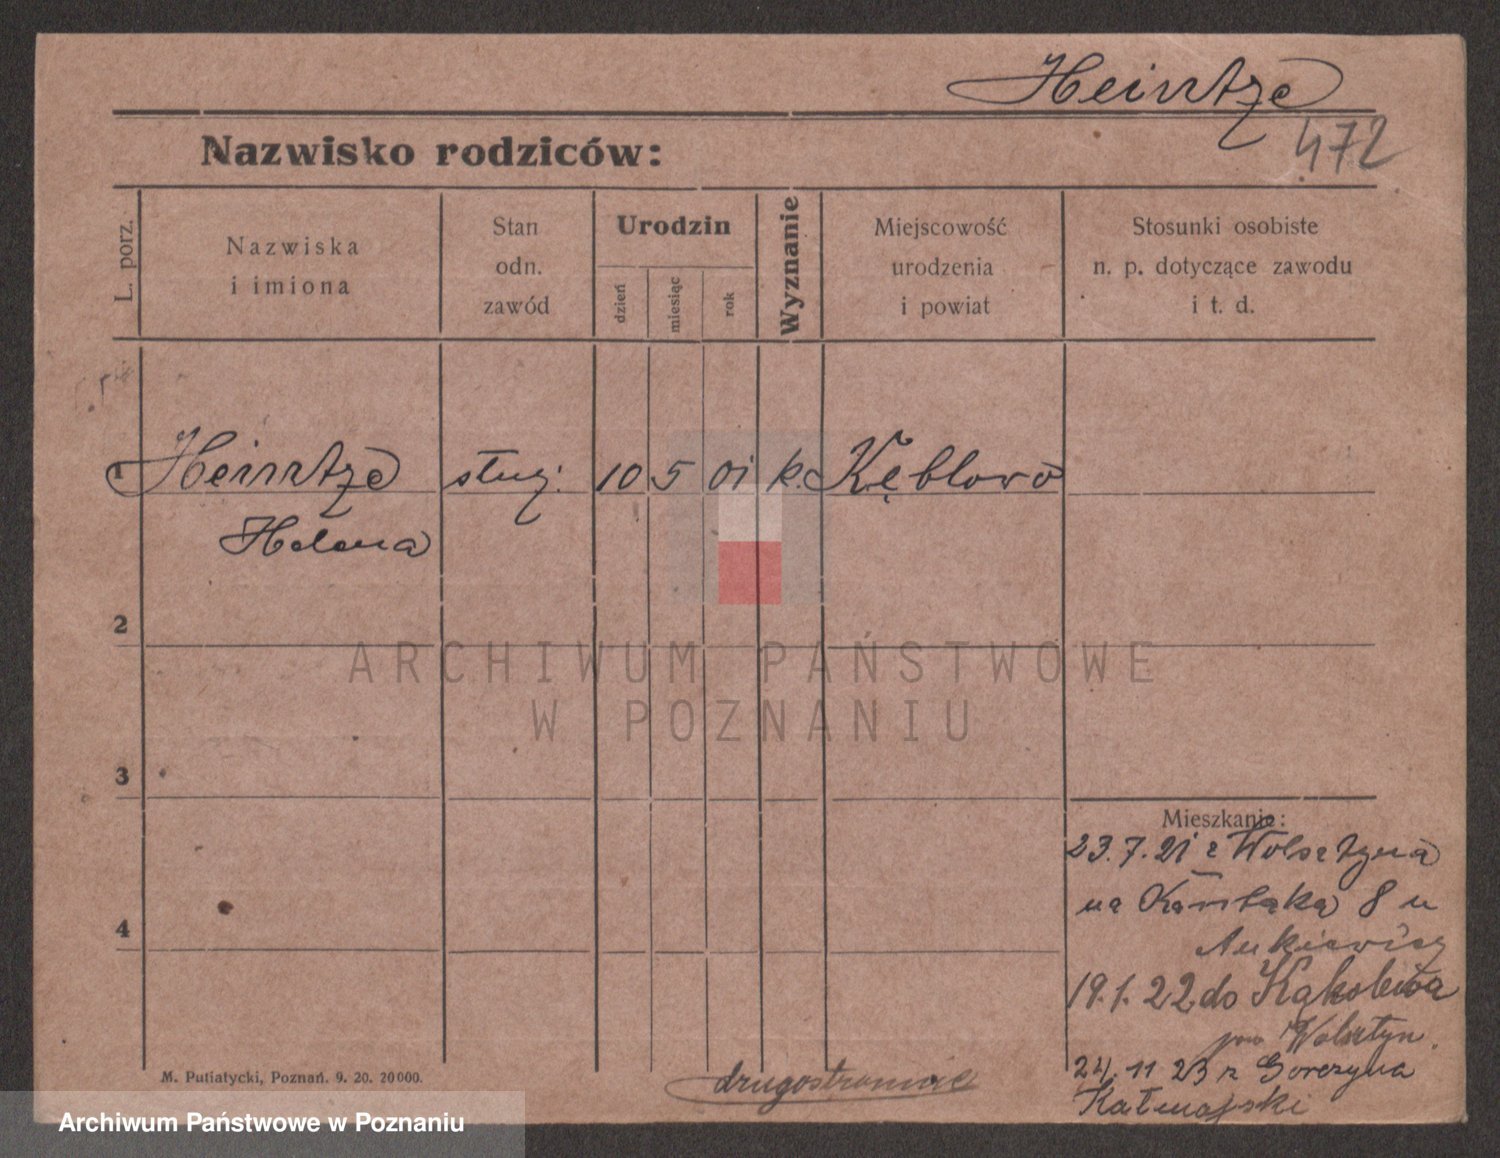 Heintze
472
Nazwisko rodziców:
L. porz.
Nazwiska
i imiona
Stan
odn.
zawód
Urodzin
dzień
miesiąc
rok
Wyznanie
Miejscowość
urodzenia
i powiat
Stosunki osobiste
n. p. dotyczące zawodu
i t. d.
1 Heintze służ. 10 5 01 k. Kębłowo
Helena
2
3
4
ARCHIWUM PAŃSTWOWE
W POZNANIU
Mieszkanie:
23.7.21 z Wolsztyna
na 8 u
19.1.22 do Kąkolewa
pow Wolsztyn.
24.11 23 z Gorczyna
drugostronnie
M. Putiatycki, Poznań. 9. 20. 20000.
Archiwum Państwowe w Poznaniu